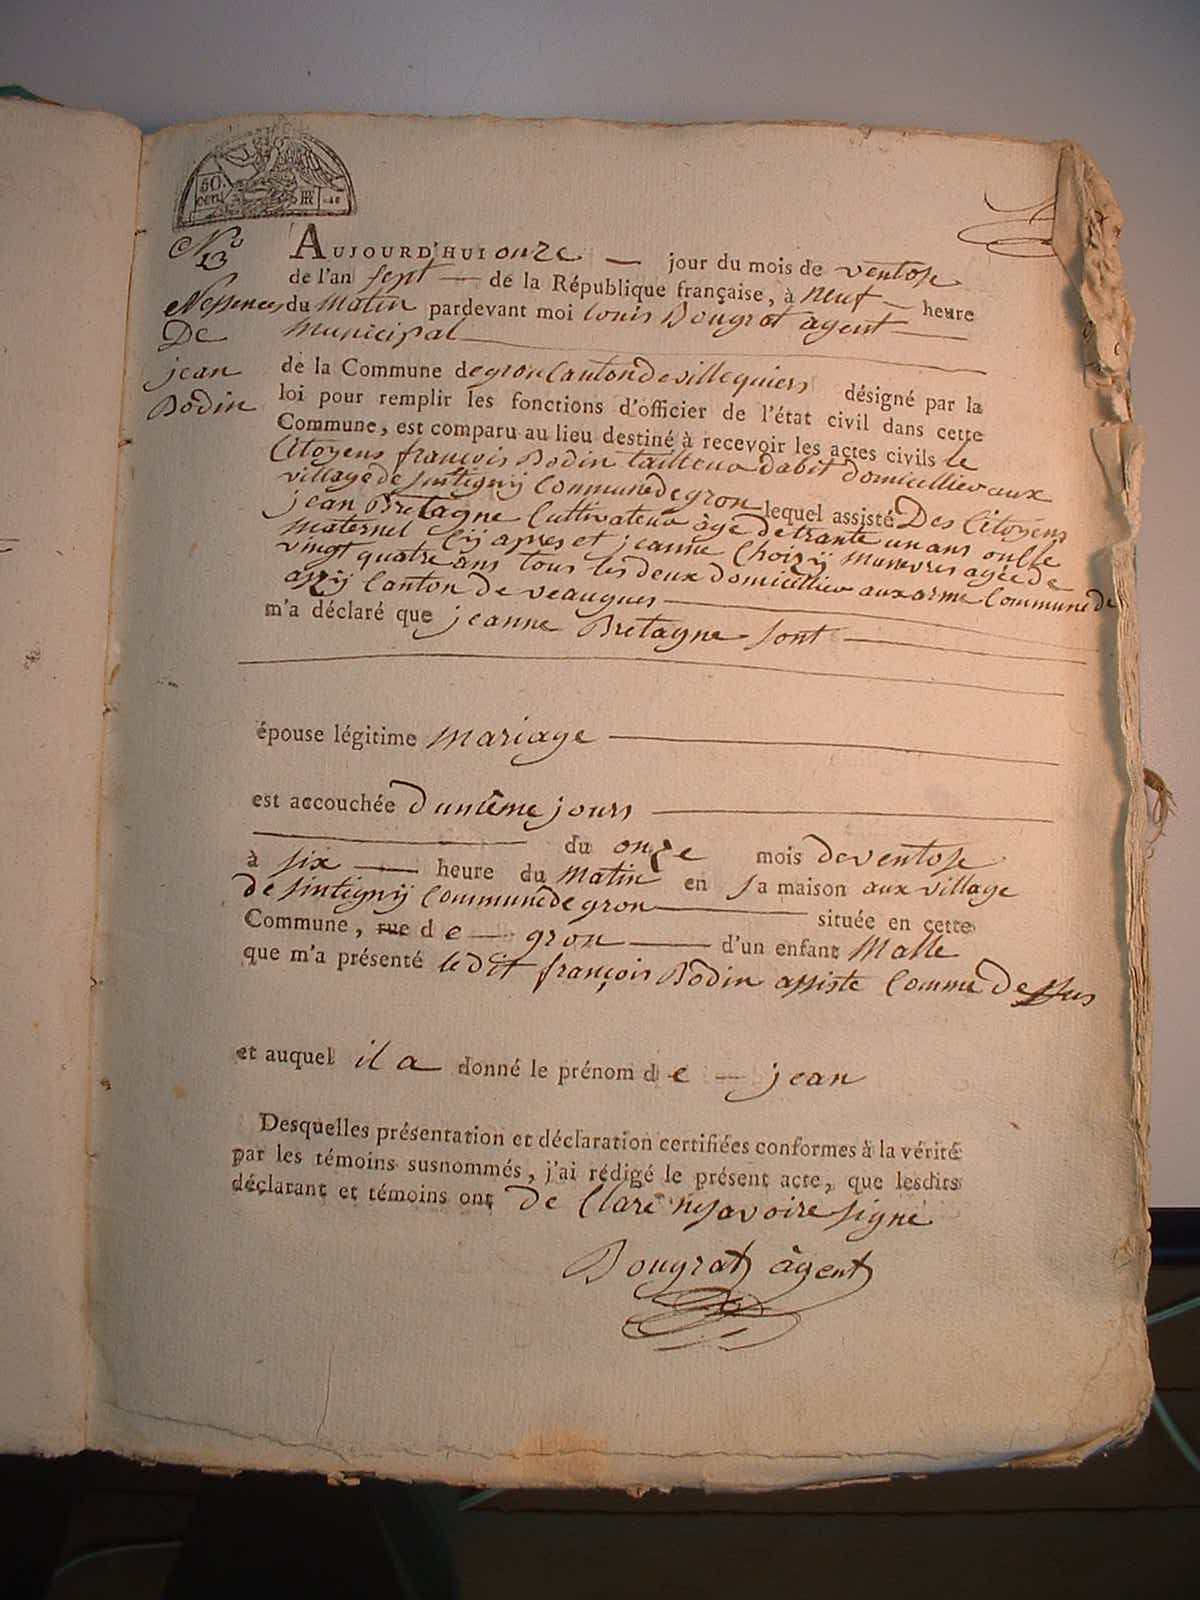 50.
cent
RF
N° 13
AUJOURD'HUI onze — jour du mois de ventose
de l'an sept — de la République française, à neuf — heure
Nessences du matin pardevant moi louis Bougrat agent
De municipal
jean de la Commune de gron Canton de villequiers désigné par la
Bodin loi pour remplir les fonctions d'officier de l'état civil dans cette
Commune, est comparu au lieu destiné à recevoir les actes civils le
Citoyens françois Bodin tailleur dabit domicellier aux
village de sintigny Commune de gron lequel assisté Des Citoyens
jean Bretagne Cultivateur âgé de trante un ans oncle
maternel cy apres et jeanne Choizy manevres agée de
vingt quatre ans tous les deux domicellier aux arme Commune de
azy Canton de veaugues
m'a déclaré que jeanne Bretagne sont
épouse légitime mariage
est accouchée d untême jours
du onze mois de ventose
à six — heure du matin en sa maison aux village
de sintigny Commune de gron — située en cette
Commune, rue de — gron — d'un enfant Malle
que m'a présenté le dit françois Bodin assiste Comme dessus
et auquel il a donné le prénom de — jean
Desquelles présentation et déclaration certifiées conformes à la vérité
par les témoins susnommés, j'ai rédigé le présent acte, que lesdits
déclarant et témoins ont de Claré ne savoire signe
Bougrat agent